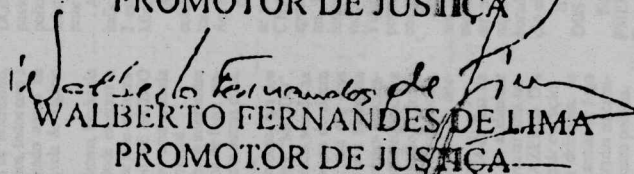 PROMOTOR DE JUSTIÇA
Walberto Fernandes de Lima
WALBERTO FERNANDES DE LIMA
PROMOTOR DE JUSTIÇA